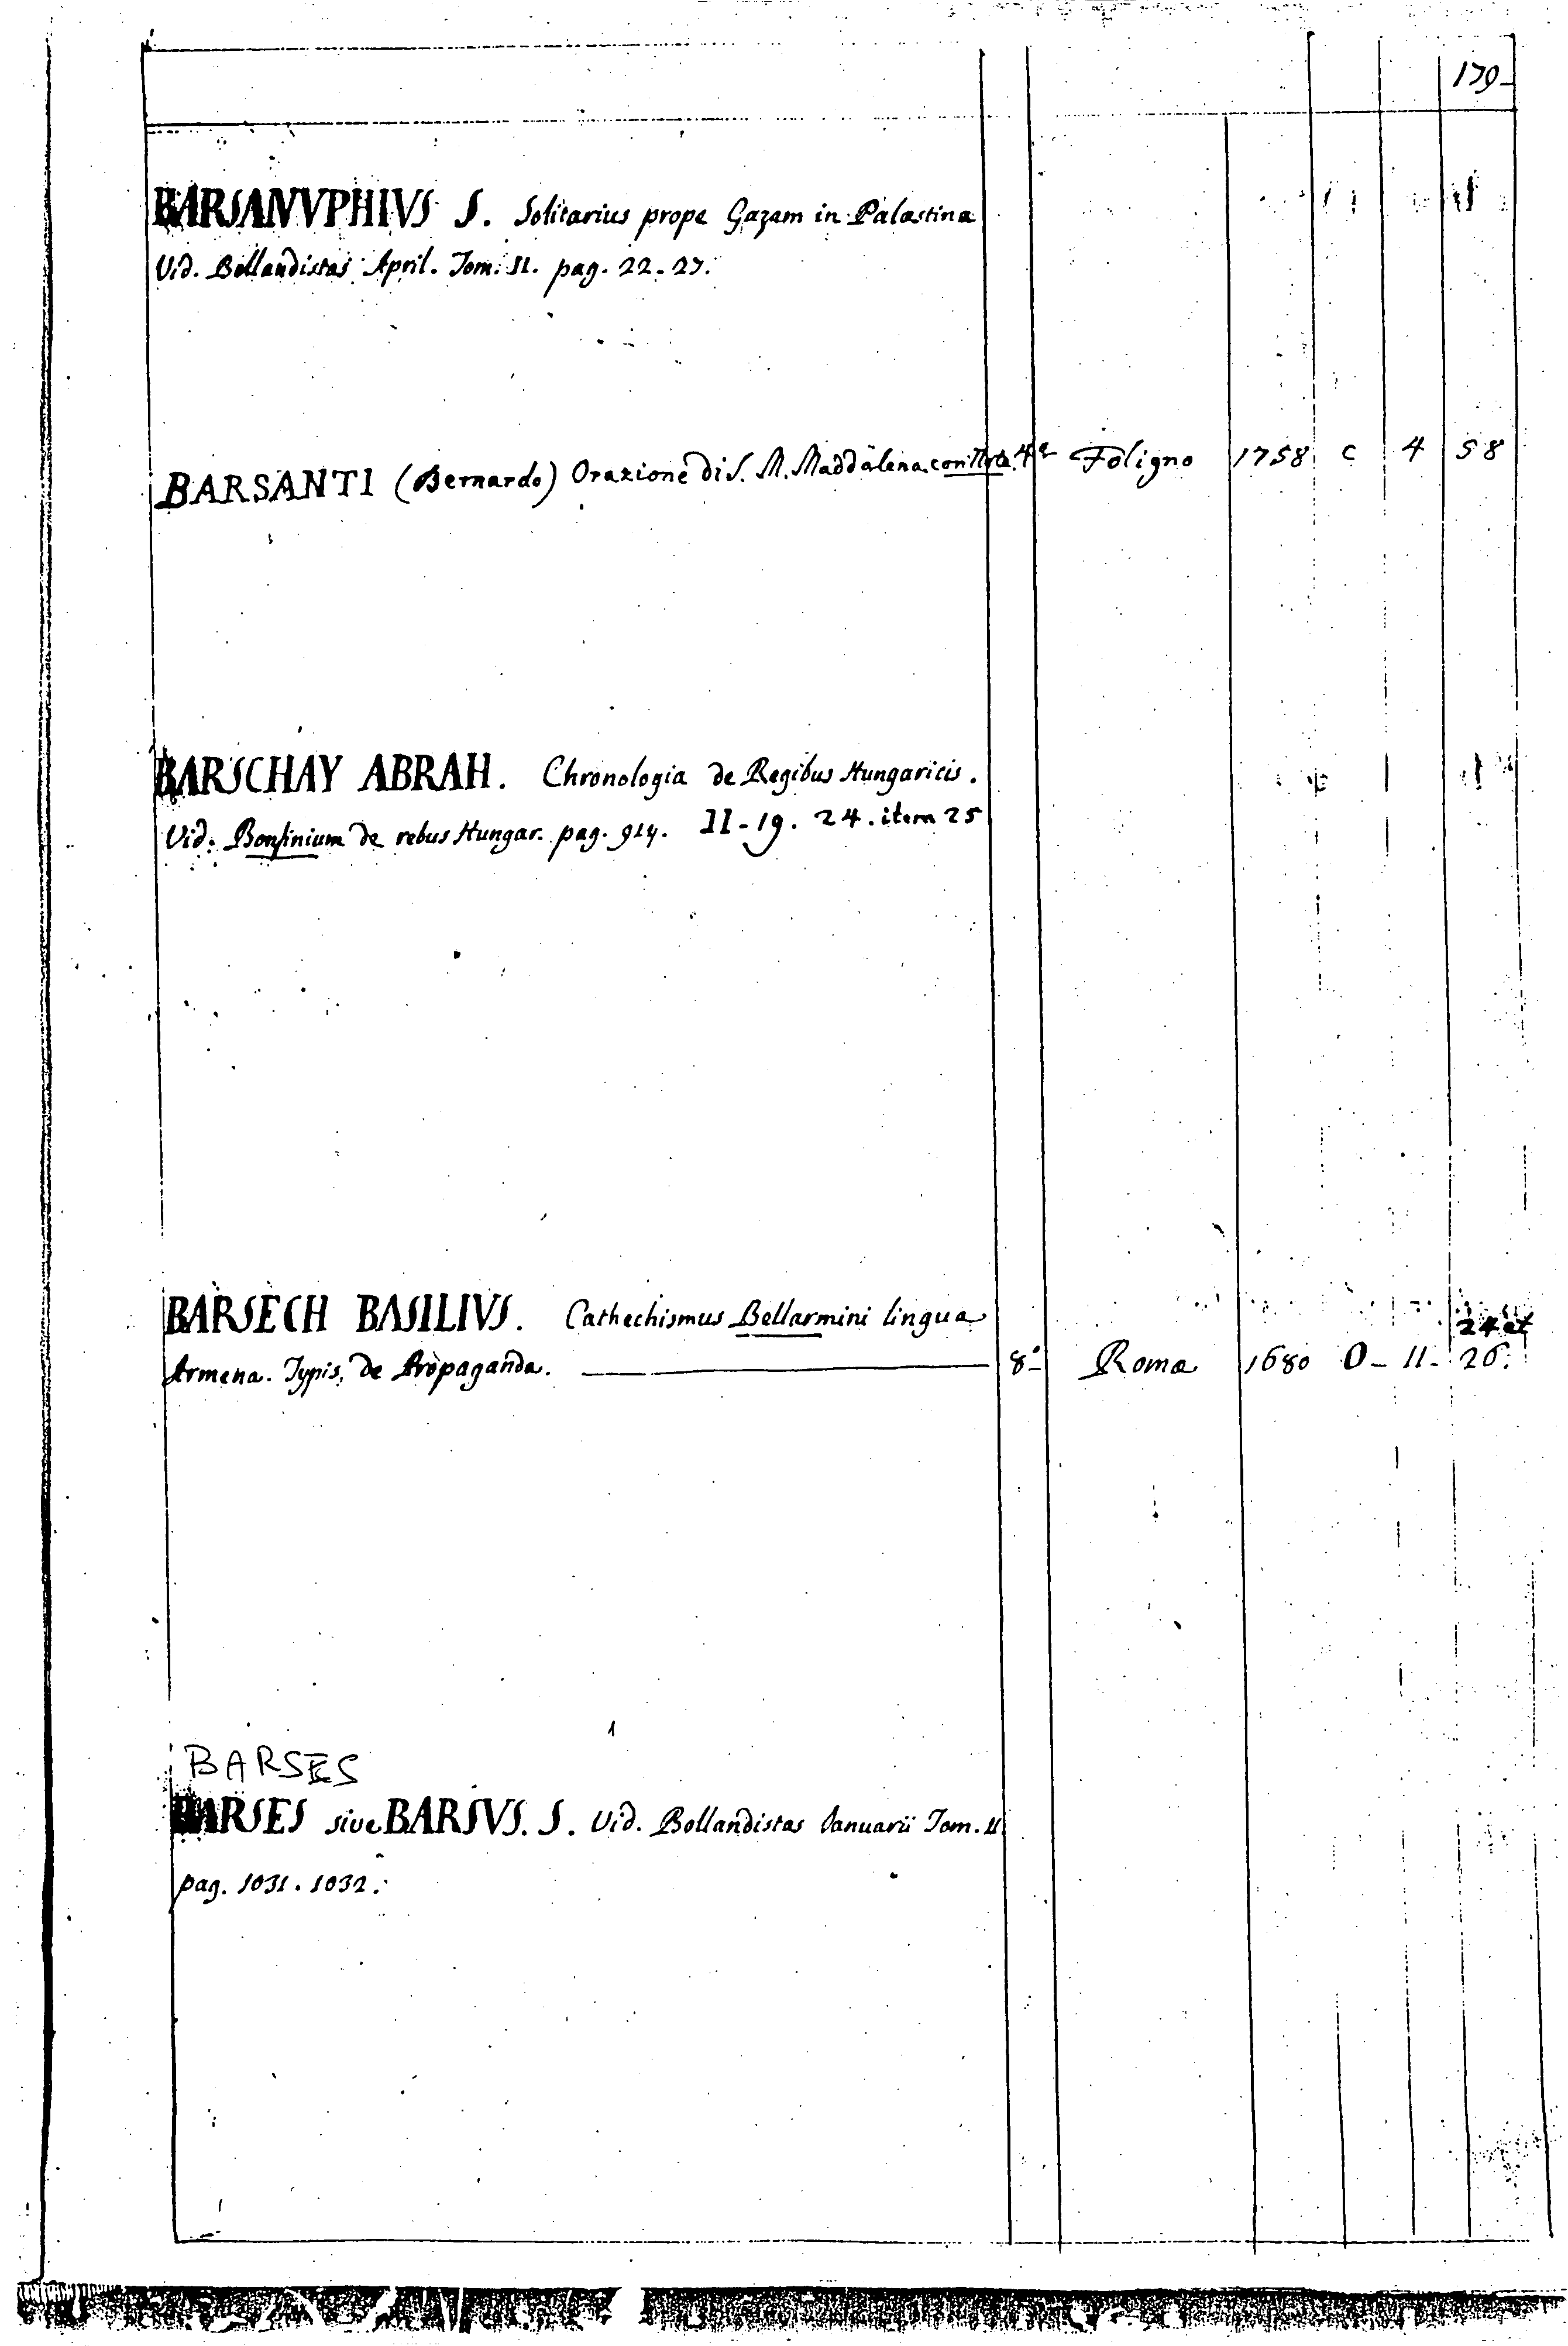 179
BARSANVPHIVS S. Solitarius prope Gazam in Palæstina
Vid. Bollandistas April. Tom. II. pag. 22-27.
BARSANTI (Bernardo) Orazione di S. M. Maddalena con Note. 4º Foligno 1758 C 4 58
BARSCHAY ABRAH. Chronologia de Regibus Hungaricis.
Vid. Bonfinium de rebus Hungar. pag. 914. II-19. 24. item 25
BARSECH BASILIVS. Cathechismus Bellarmini lingua
24 et
Armena. Typis, de Propaganda. 8º Roma 1680 O-11-26.
BARSES
BARSES sive BARSVS. S. Vid. Bollandistas Ianuarii Tom. II
pag. 1031. 1032.